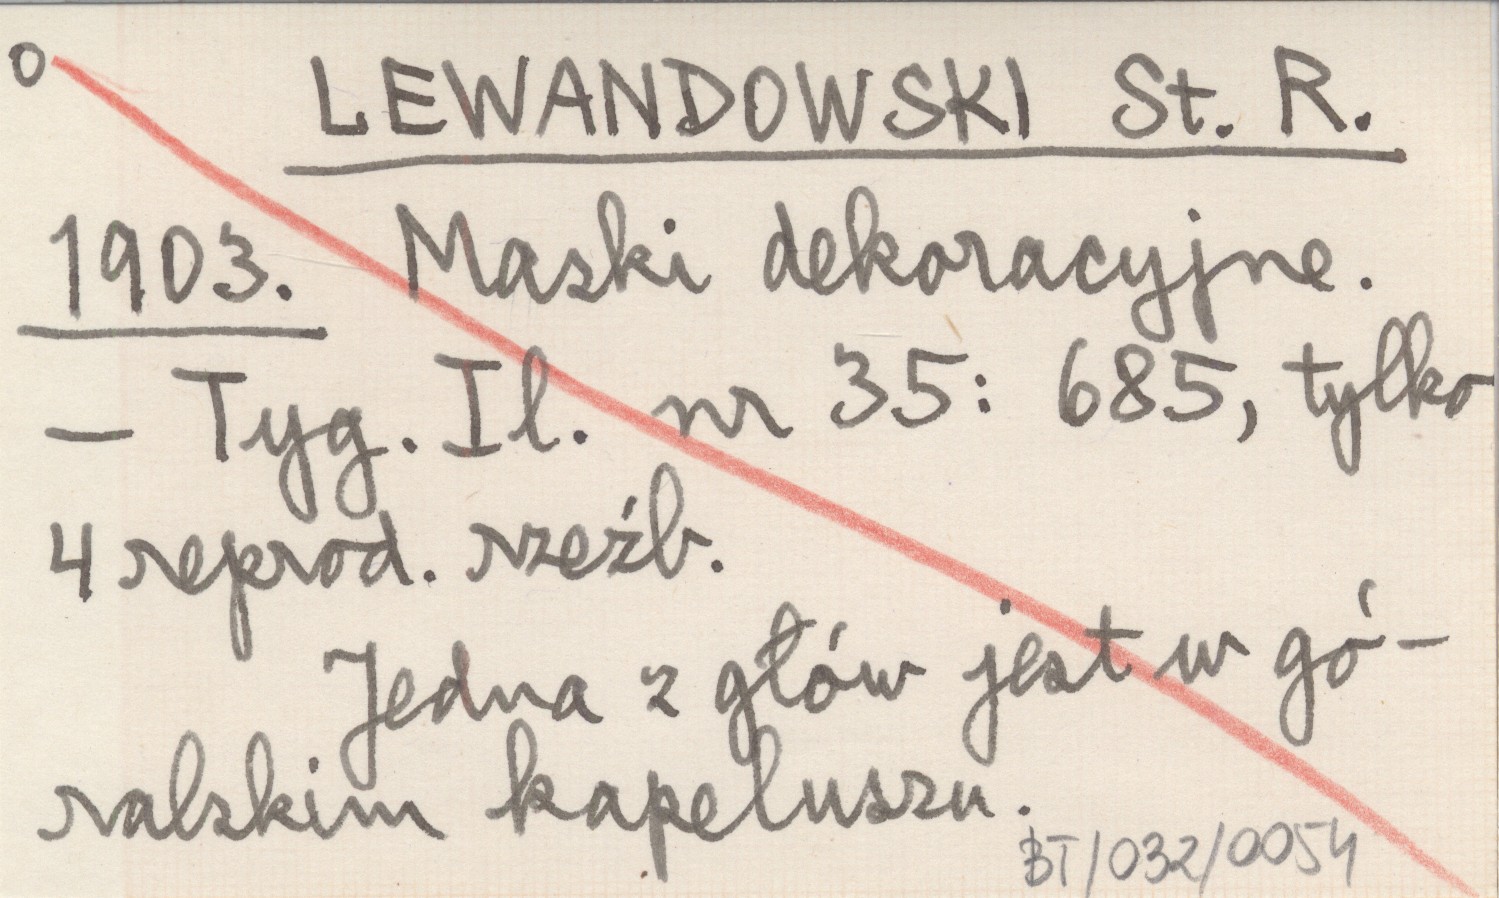 O
LEWANDOWSKI St. R.
1903. Maski dekoracyjne.
– Tyg. Il. nr 35: 685, tylko
4 reprod. rzeźb.
Jedna z głów jest w gó-
ralskim kapeluszu.
BT/032/0054